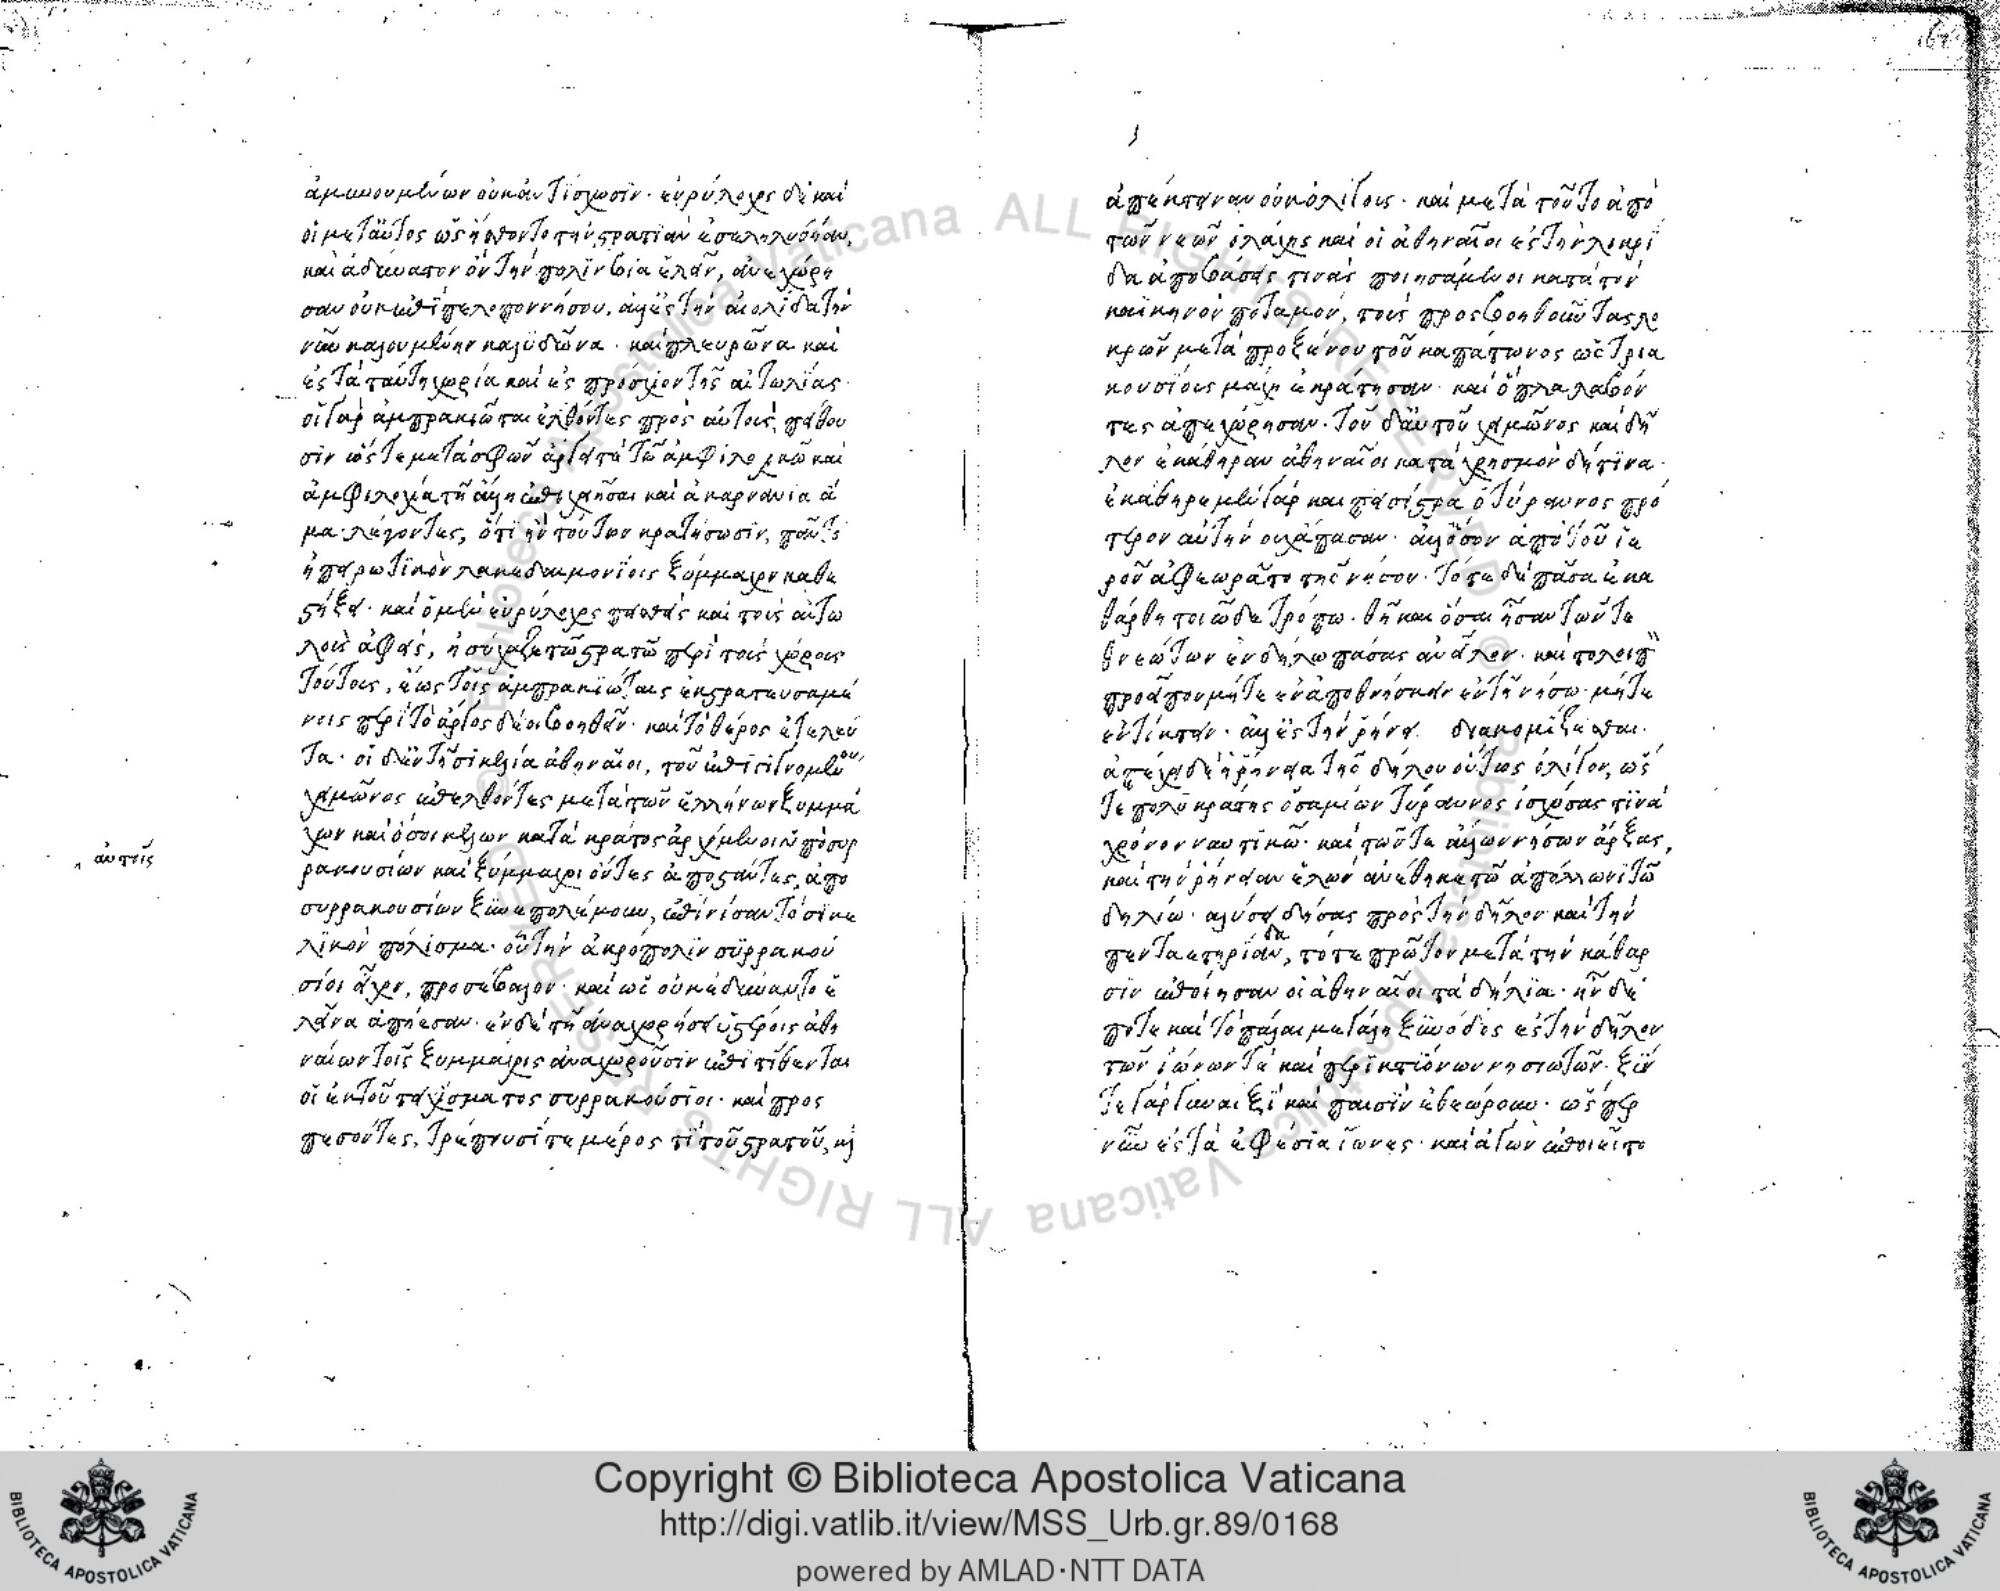 ἀμυνουμένων οὐκ ἀντίσχωσιν· εὐρύλοχος δὲ καὶ
οἱ μετ' αὐτοῦ ὡς ᾔσθοντο τὴν στρατιὰν ἐσεληλυθυῖαν,
καὶ ἀδύνατον ὂν τὴν πόλιν βία ἑλεῖν, ἀνεχώρη
σαν οὐκ ἐπὶ πελοποννήσου, ἀλλ' ἐς τὴν αἰολίδα τὴν
νῦν καλουμένην καλυδῶνα· καὶ πλευρῶνα καὶ
ἐς τὰ ταύτῃ χωρία καὶ ἐς πρόσχιον τῆς αἰτωλίας·
οἱ γὰρ ἀμπρακιῶται ἐλθόντες πρὸς αὐτοὺς, πείθου
σιν ὥστε μετὰ σφῶν ἄργει τε τῶ ἀμφιλοχικῶ καὶ
ἀμφιλοχία τῆ ἄλλη ἐπιχειρῆσαι καὶ ἀκαρνανία ἅ
μα· λέγοντες, ὅτι ἢν τούτων κρατήσωσιν, πᾶν τὸ
ἠπειρωτικὸν λακεδαιμονίοις ξύμμαχον καθε
στήξει· καὶ ὁ μὲν εὐρύλοχος πεισθεὶς καὶ τοὺς αἰτω
λοὺς ἀφεὶς, ἡσύχαζε τῶ στρατῶ περὶ τοὺς χώρους
τούτους, ἕως τοῖς ἀμπρακιώταις ἐκστρατευσαμέ
νοις περὶ τὸ ἄργος δέοι βοηθεῖν· καὶ τὸ θέρος ἐτελεύ
τα· οἱ δ' ἐν τῆ σικελία ἀθηναῖοι, τοῦ ἐπιγιγνομένου
χειμῶνος ἐπελθόντες μετὰ τῶν ἑλλήνων ξυμμά
χων καὶ ὅσοι σικελῶν κατὰ κράτος ἀρχόμενοι ὑπὸ συρ
ρακουσίων καὶ ξύμμαχοι ὄντες ἀποστάντες, ἀπὸ
αὐτοῖς
συρρακουσίων ξυνεπολέμουν, ἐπ' ἴνησαν τὸ σικε
λικὸν πόλισμα· οὗ τὴν ἀκρόπολιν συρρακού
σιοι εἶχον, προσέβαλον· καὶ ὡς οὐκ ἐδύναντο ἑ
λεῖν ἀπῄεσαν· ἐν δὲ τῆ ἀναχωρήσει ὑστέροις ἀθη
ναίων τοῖς ξυμμάχοις ἀναχωροῦσιν ἐπιτίθενται
οἱ ἐκ τοῦ τειχίσματος συρρακούσιοι· καὶ προς
πεσόντες, τρέπουσί τε μέρος τι τοῦ στρατοῦ, καὶ
ἀπέκτειναν οὐκ ὀλίγους· καὶ μετὰ τοῦτο ἀπὸ
τῶν νεῶν ὁ λάχης καὶ οἱ ἀθηναῖοι ἐς τὴν λοκρί
δα ἀποβάσεις τινὰς ποιησάμενοι κατὰ τὸν
καϊκηνὸν ποταμὸν, τοὺς προσβοηθοῦντας λο
κρῶν μετὰ προξένου τοῦ καπάτωνος ὡς τρια
κοσίους μάχη ἐκράτησαν· καὶ ὅπλα λαβόν
τες ἀπεχώρησαν· τοῦ δ' αὐτοῦ χειμῶνος καὶ δῆ
λον ἐκάθηραν ἀθηναῖοι κατὰ χρησμὸν δή τινα·
ἐκάθηρε μὲν γὰρ καὶ πεισίστρατος ὁ τύραννος πρό
τερον αὐτὴν οὐχ ἅπασαν· ἀλλ' ὅσον ἀπὸ τοῦ ἱε
ροῦ ἀφεωρᾶτο τῆς νήσου· τότε δὲ πᾶσα ἐκα
θάρθη τοιῶδε τρόπω· θῆκαι ὅσαι ἦσαν τῶν τε
θνεώτων ἐν δήλω πάσας ἀνεῖλον· καὶ τὸ λοιπὸν
προεῖπον μήτε ἐναποθνήσκειν ἐν τῆ νήσω· μήτε
ἐντίκτειν· ἀλλ' ἐς τὴν ῥήνειαν διακομίζεσθαι·
ἀπέχει δὲ ἡ ῥήνεια τῆς δήλου οὕτως ὀλίγον, ὥς
τε πολυκράτης ὁ σαμίων τύραννος ἰσχύσας τινὰ
χρόνον ναυτικῶ· καὶ τῶν τε ἄλλων νήσων ἄρξας,
καὶ τὴν ῥήνειαν ἑλὼν ἀνέθηκε τῶ ἀπόλλωνι τῶ
δηλίω· ἁλύσει δήσας πρὸς τὴν δῆλον· καὶ τὴν
πενταετηρίδα, τότε πρῶτον μετὰ τὴν κάθαρ
σιν ἐποίησαν οἱ ἀθηναῖοι τὰ δήλια· ἦν δέ
ποτε καὶ τὸ πάλαι μεγάλη ξύνοδος ἐς τὴν δῆλον
τῶν ἰώνων τε καὶ περικτιόνων νησιωτῶν· ξύν
τε γὰρ γυναιξὶ καὶ παισὶν ἐθεώρουν· ὥσπερ
νῦν ἐς τὰ ἐφέσια ἴωνες· καὶ ἀγὼν ἐποιεῖτο
Copyright © Biblioteca Apostolica Vaticana
http://digi.vatlib.it/view/MSS_Urb.gr.89/0168
powered by AMLAD·NTT DATA